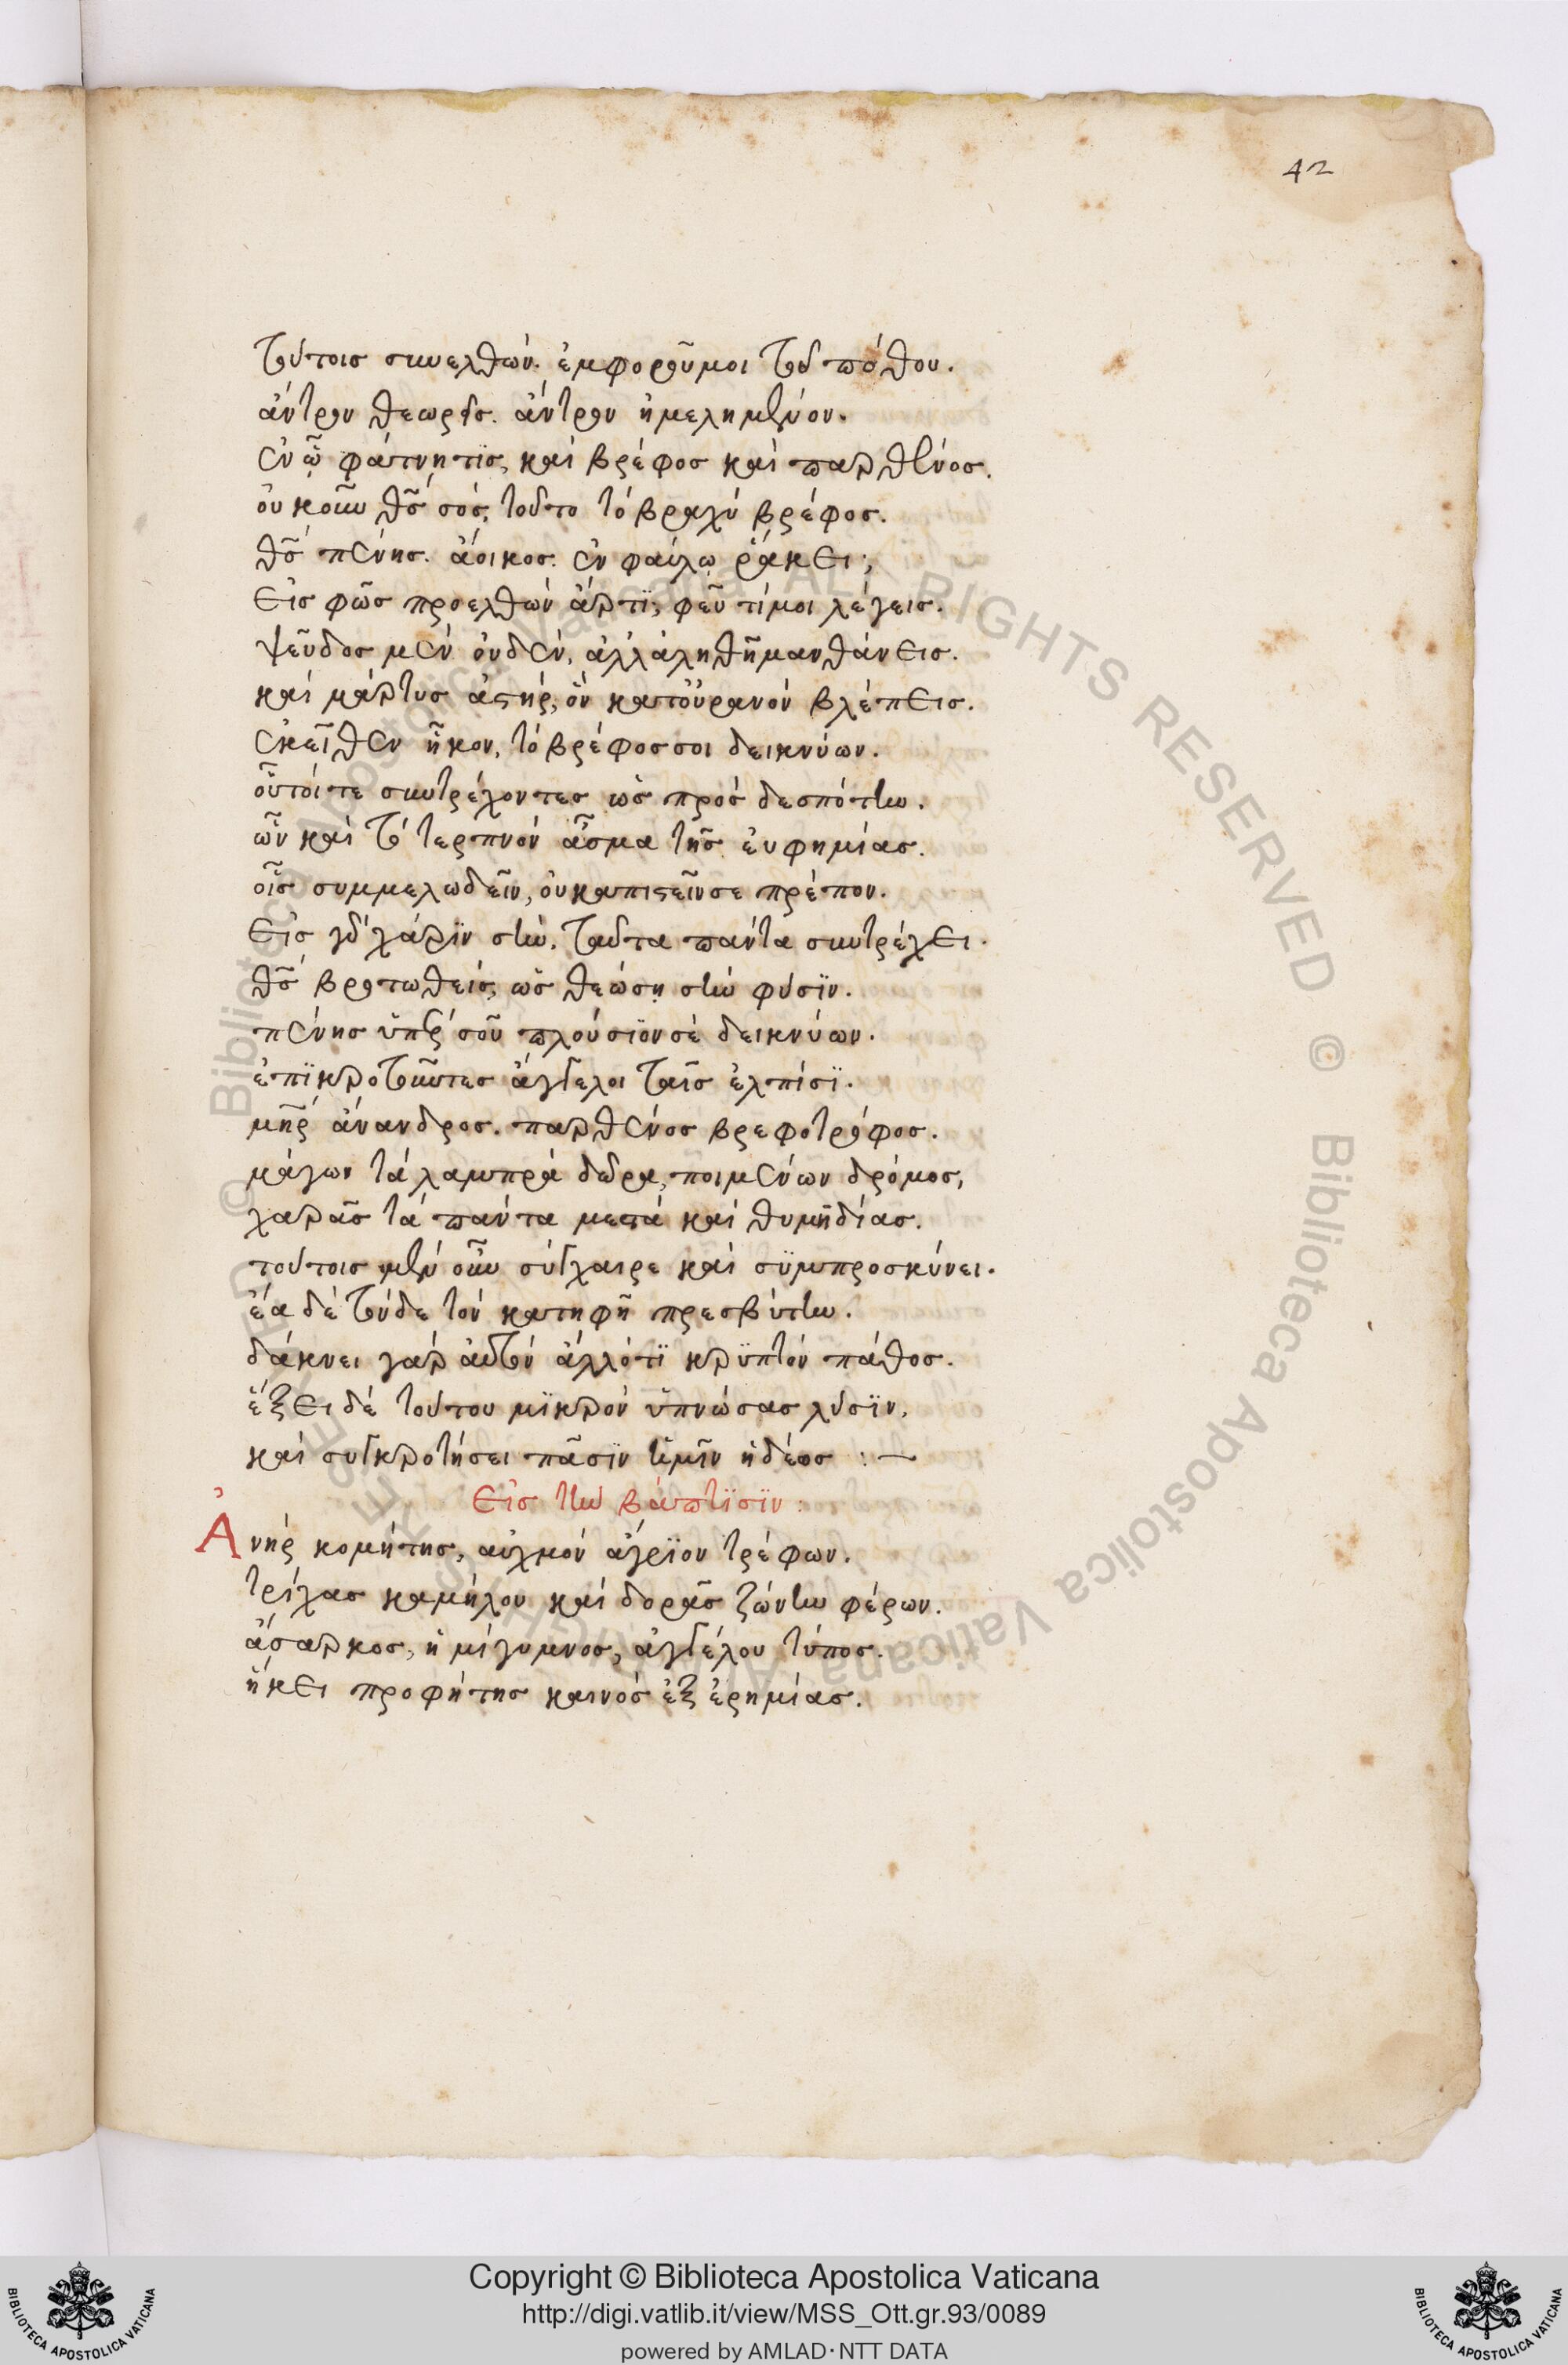 42
τούτοις συνελθών. ἐμφοροῦμαι τοῦ πόθου.
ἄντρον θεωρεῖς. ἄντρον ἠμελημένον.
ἐν ᾧ φάτνη τίς, καὶ βρέφος καὶ παρθένος.
οὐκοῦν θς σός, τοῦτο τὸ βραχὺ βρέφος.
θς πένης. ἄοικος. ἐν φαύλῳ ῥάκει;
εἰς φῶς προελθὼν ἄρτϊ, φεῦ τί μοι λέγεις.
ψεῦδος μὲν οὐδέν, ἀλλ᾽ ἀληθῆ μανθάνεις.
καὶ μάρτυς ἀστήρ, ὃν κατ᾽ οὐρανὸν βλέπεις.
ἐκεῖθεν ἧκον, τὸ βρέφος σοι δεικνύων.
οὗτοί τε συντρέχοντες ὡς πρὸς δεσπότην.
ὧν καὶ τὸ τερπνὸν ᾆσμα τῆς εὐφημίας.
οἷς συμμελωδεῖν, οὐκ ἀπιστεῖν σε πρέπον.
εἰς γὰρ χάρϊν σὴν, ταῦτα πάντα συντρέχει.
θς βροτωθείς, ὡς θεώσῃ σὴν φύσϊν.
πένης ὑπὲρ σοῦ πλούσϊόν σε δεικνύων.
ἐπϊκροτοῦντες ἄγγελοι ταῖς ἐλπίσϊ.
μηρ ἄνανδρος. παρθένος βρεφοτρόφος.
μάγων τὰ λαμπρὰ δῶρα, ποιμένων δρόμος,
χαρᾶς τὰ πάντα μεστὰ καὶ θυμηδίας.
τούτοις μὲν οὖν σύγχαιρε καὶ σϋμπροσκύνει.
ἔα δὲ τόνδε τὸν κατηφῆ πρεσβύτην.
δάκνει γὰρ αὐτὸν ἄλλό τϊ κρϋπτὸν πάθος.
ἕξει δὲ τούτου μϊκρὸν ὑπνώσας λύσϊν,
καὶ συγκροτήσει πᾶσϊν ἡμῖν ἡδέως :—
Εἰς τὴν βάπτϊσϊν:
Ἀνὴρ κομήτης, αὐχμὸν ἄγρϊον τρέφων.
τρίχας καμήλου καὶ δορᾶς ζώνην φέρων.
ἄσαρκος, ἡμίγυμνος, ἀγγέλου τύπος.
ἥκει προφήτης καινὸς ἐξ ἐρημίας.
© Biblioteca Apostolica Vaticana ALL RIGHTS RESERVED © Biblioteca Apostolica Vaticana ALL RIGHTS RESERVED
Copyright © Biblioteca Apostolica Vaticana
http://digi.vatlib.it/view/MSS_Ott.gr.93/0089
powered by AMLAD·NTT DATA
BIBLIOTECA APOSTOLICA VATICANA
BIBLIOTECA APOSTOLICA VATICANA